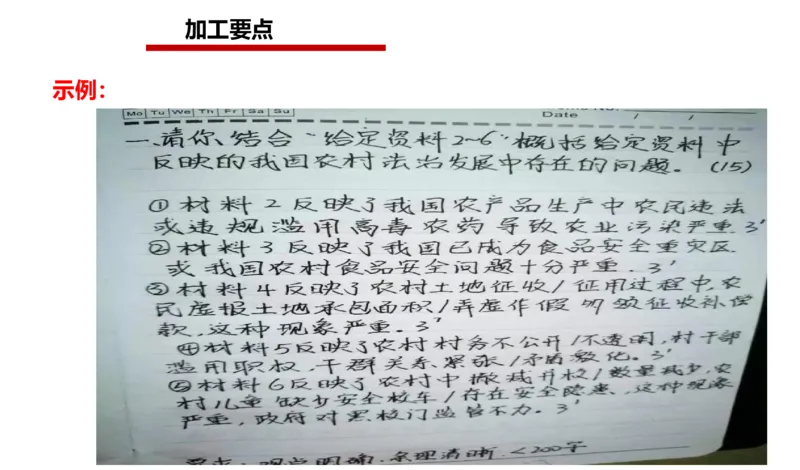 加工要点
示例:
Mo Tu We Th Fr Sa Su
Date / /
一、请你结合“给定资料2~6”概括给定资料中
反映的我国农村法治发展中存在的问题。(15)
①材料2反映了我国农产品生产中农民违法
或违规滥用高毒农药导致农业污染严重3'
②材料3反映了我国已成为食品安全重灾区
或我国农村食品安全问题十分严重。3'
③材料4反映了农村土地征收/征用过程中,农
民虚报土地承包面积/弄虚作假多领征收补偿
款,这种现象严重。3'
④材料5反映了农村村务不公开/不透明,村干部
滥用职权,干群关系紧张/矛盾激化。3'
⑤材料6反映了农村中撤减并校/数量减少,农
村儿童缺少安全校车/存在安全隐患、这种现象
严重,政府对黑校门监管不力。3'
观点明确.条理清晰.<200字